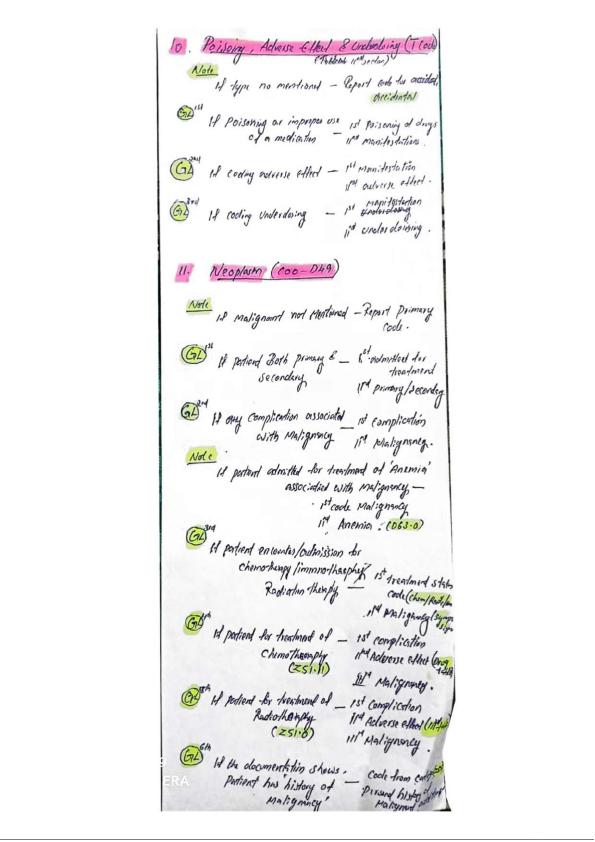 10. Poisoing, Adverse Effect & Underdosing (T Code)
(Tabular IInd section)
Note
If type no mentioned – Report code for accidental
accidental
GL 1st If Poisoning or improper use – 1st Poisoning of drugs
of a medication IInd manifestations.
GL 2nd If coding adverse effect – 1st Manifestation
IInd adverse effect.
GL 3rd If coding Underdosing – 1st manifestation
underdosing
IInd underdosining.
11. Neoplasm (C00-D49)
Note
If Malignant not Mentioned – Report Primary
Code.
GL 1st If patient Both primary & – 1st admitted for
secondary treatment
IInd primary/secondary
GL 2nd If any complication associated – 1st complication
with Malignancy IInd Malignancy.
Note
If patient admitted for treatment of 'Anemia'
associated with Malignancy –
1st code Malignancy
IInd Anemia. (D63.0)
GL 3rd If patient encounter/admission for
chemotherapy/immunotherapy/
Radiation therapy – 1st treatment status
code (chem/Radiation
IInd Malignancy
GL 4th If patient for treatment of – 1st complication
Chemotherapy IInd Adverse effect (Drug
(Z51.11) IIIrd Malignancy.
GL 5th If patient for treatment of – 1st Complication
Radiotherapy IInd Adverse effect
(Z51.0) IIIrd Malignancy.
GL 6th If the documentation shows,
patient has "history of – code from
Malignancy" Personal history of
Malignant
9
ERA